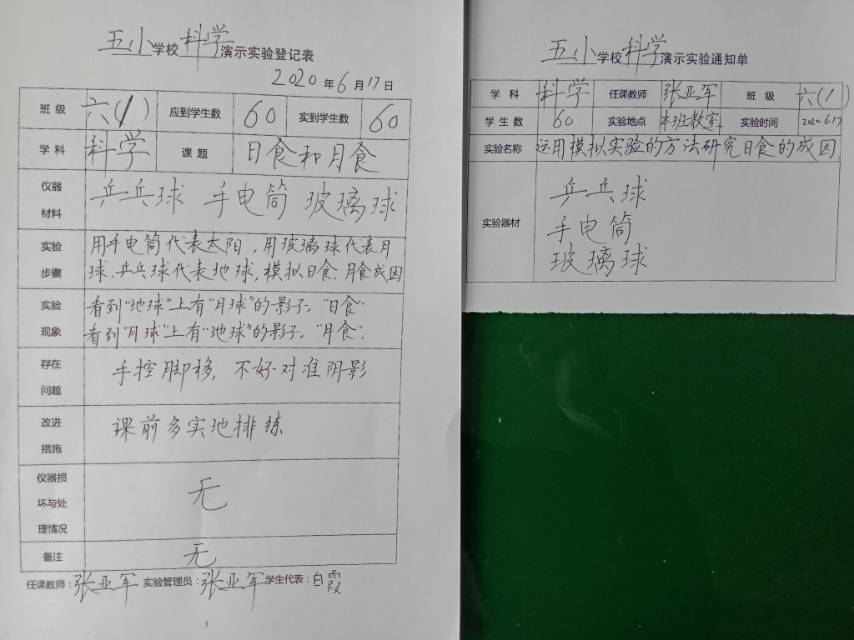 五小学校科学演示实验登记表
2020年6月17日
班级 六(1) 应到学生数 60 实到学生数 60
学科 科学 课题 日食和月食
仪器材料 乒乓球 手电筒 玻璃球
实验步骤 用手电筒代表太阳，用玻璃球代表月
球，乒乓球代表地球，模拟日食、月食成因
实验现象 看到"地球"上有"月球"的影子，"日食"
看到"月球"上有"地球"的影子，"月食"。
存在问题 手控脚移，不好对准阴影
改进措施 课前多实地排练
仪器损坏与处理情况 无
备注 无
任课教师：张亚军 实验管理员：张亚军 学生代表：白霞
3
五小学校科学演示实验通知单
学科 科学 任课教师 张亚军 班级 六(1)
学生数 60 实验地点 本班教室 实验时间 2020.6.17
实验名称 运用模拟实验的方法研究日食的成因。
实验器材 乒乓球
手电筒
玻璃球